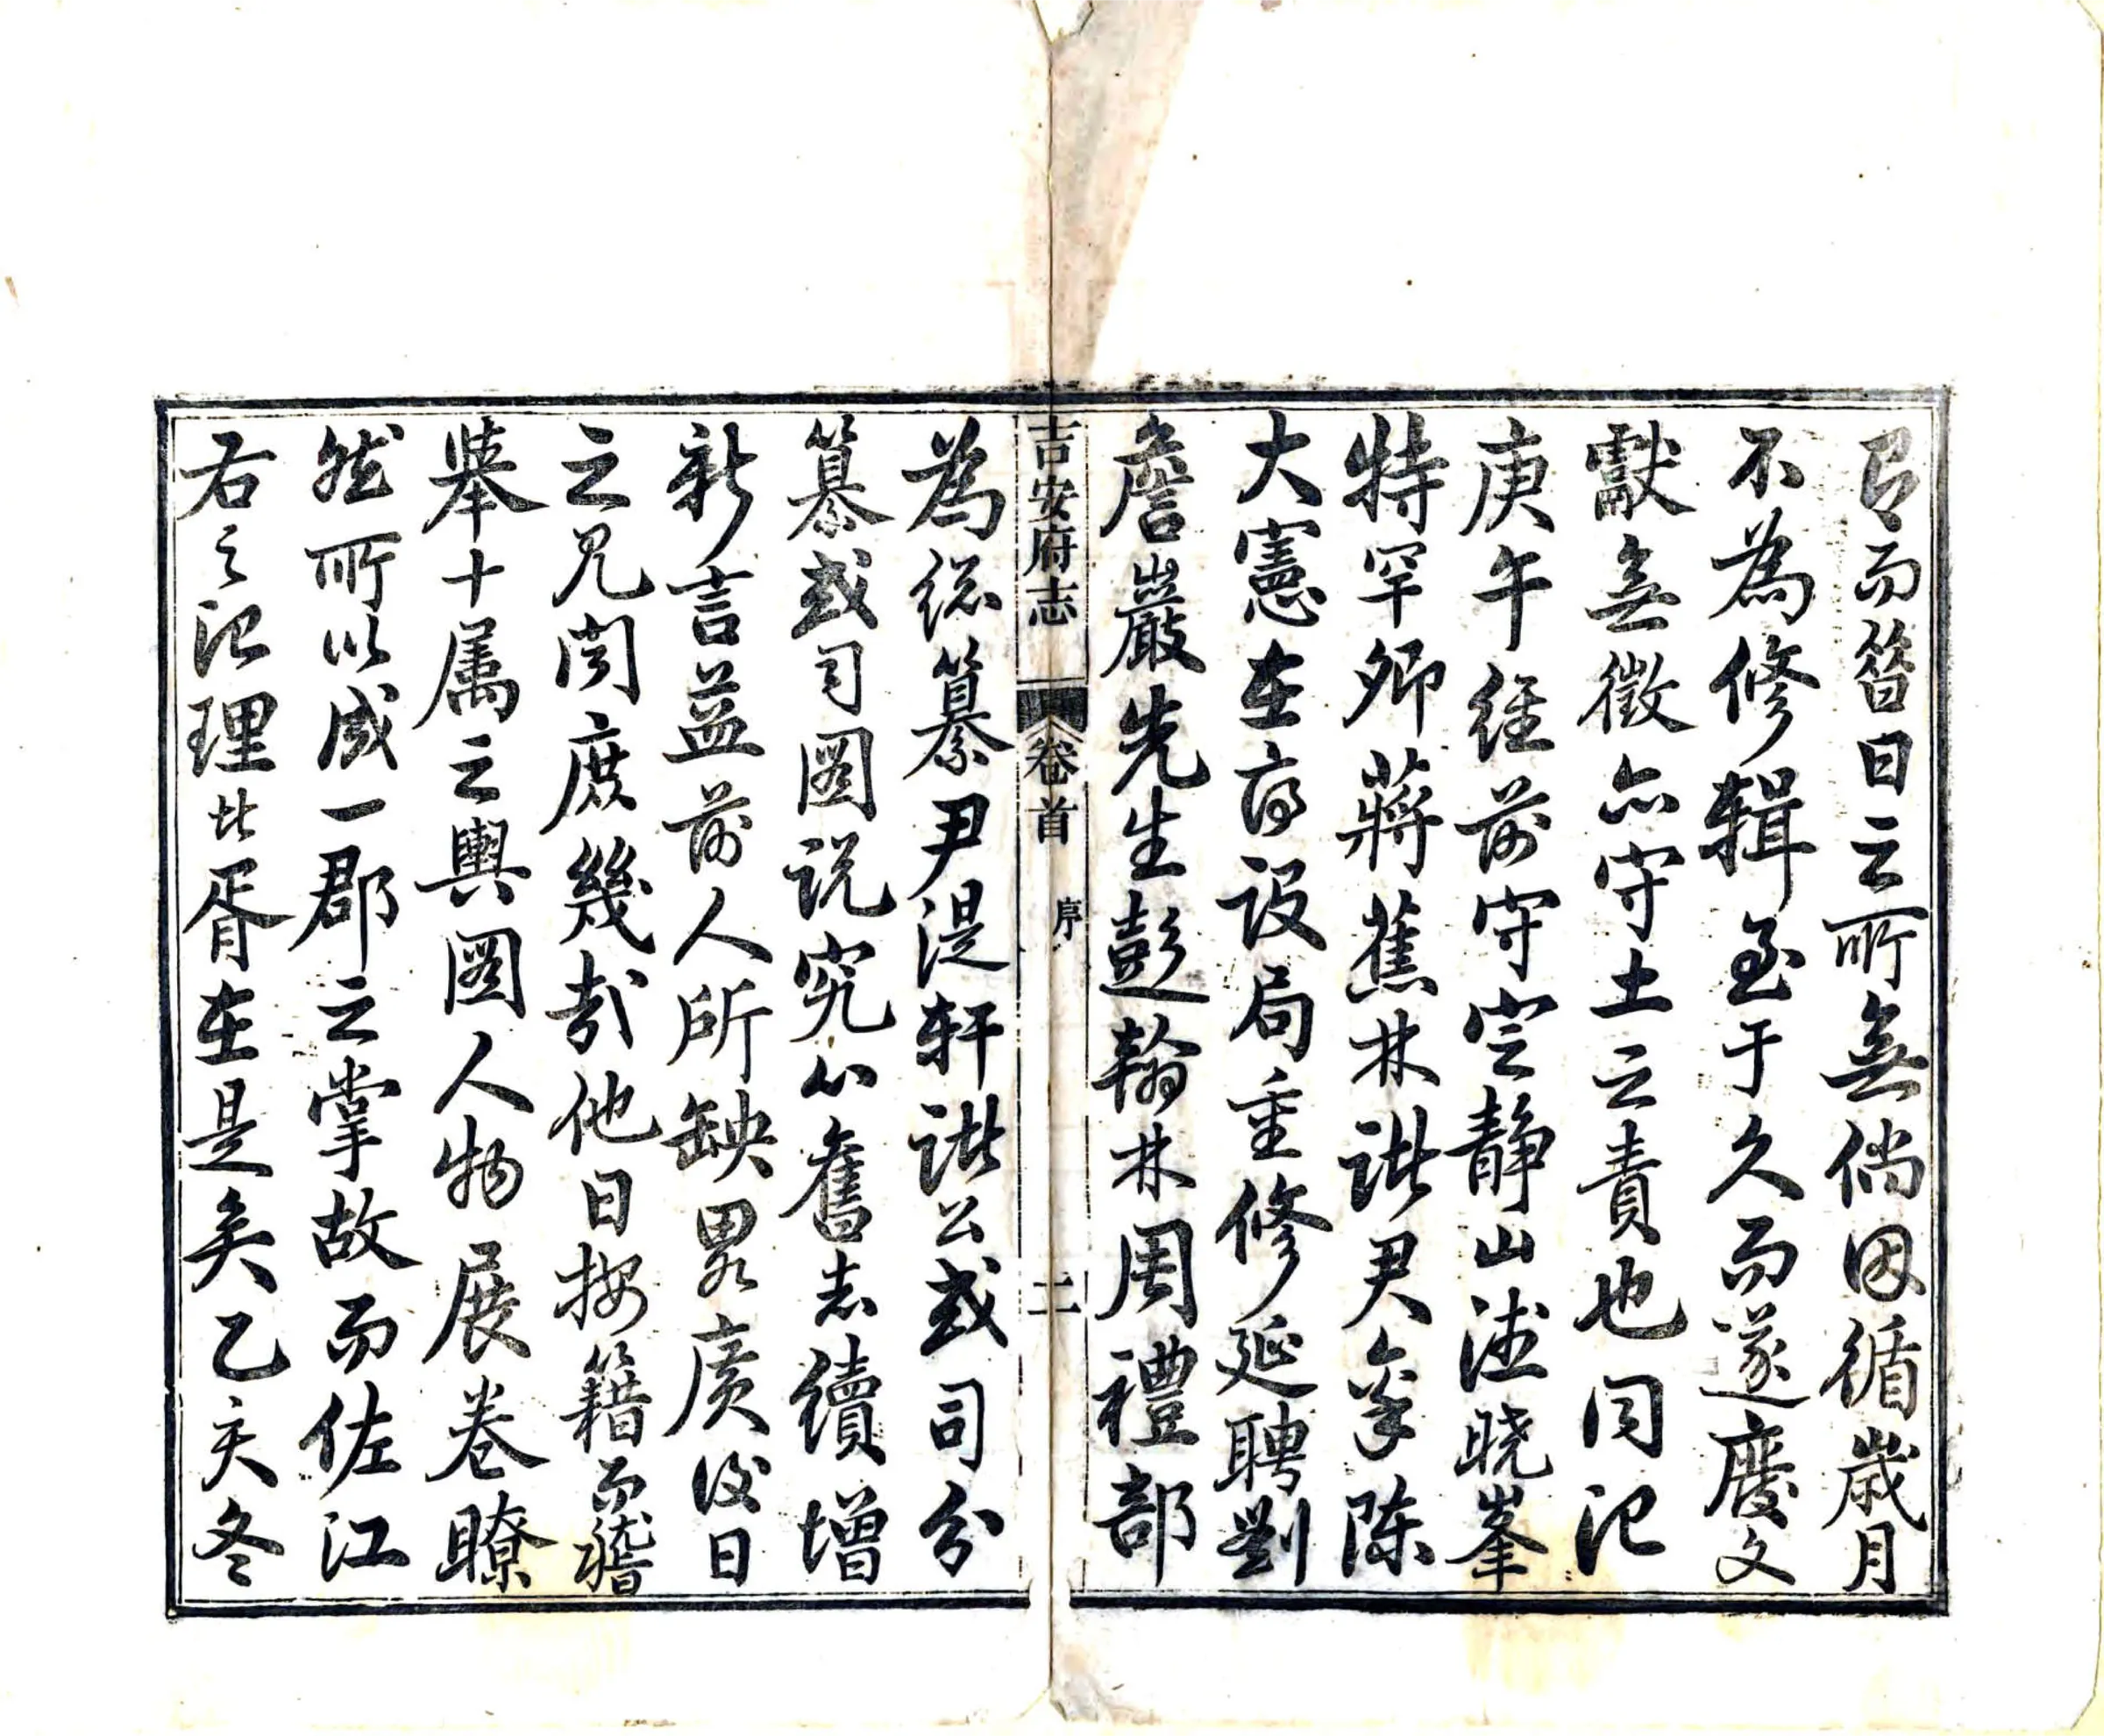 有而皆日之所無倘因循歲月
不為修輯至于久而遂廢文
獻無徵亦守土之責也同治
庚午經前守定靜山德曉峯
特罕卿蔣蕉林諸君拿陳
大憲在府設局重修延聘劉
詹巖先生彭翰林周禮部
吉安府志 卷首 序 二
為總纂尹湜軒諸公或司分
纂或司圖說究心舊志續增
新言益前人所缺畧廣後日
之見聞庶幾哉他日按籍而稽
舉十屬之輿圖人物展卷瞭
然所以成一郡之掌故而佐江
右之治理此胥在是矣乙亥冬